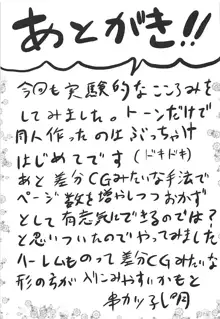 あとがき!!
今回も実験的なこころみを
してみました。トーンだけで
同人作ったのはぶっちゃけ
はじめてです(ドキドキ)
あと差分CGみたいな手法で
ページ数を増やしつつおかず
として有意気にできるのでは?
と思いついたのでやってみました
ハーレムものって差分CGみたいな
形の方が入りこみやすいかもと
串カツ子し